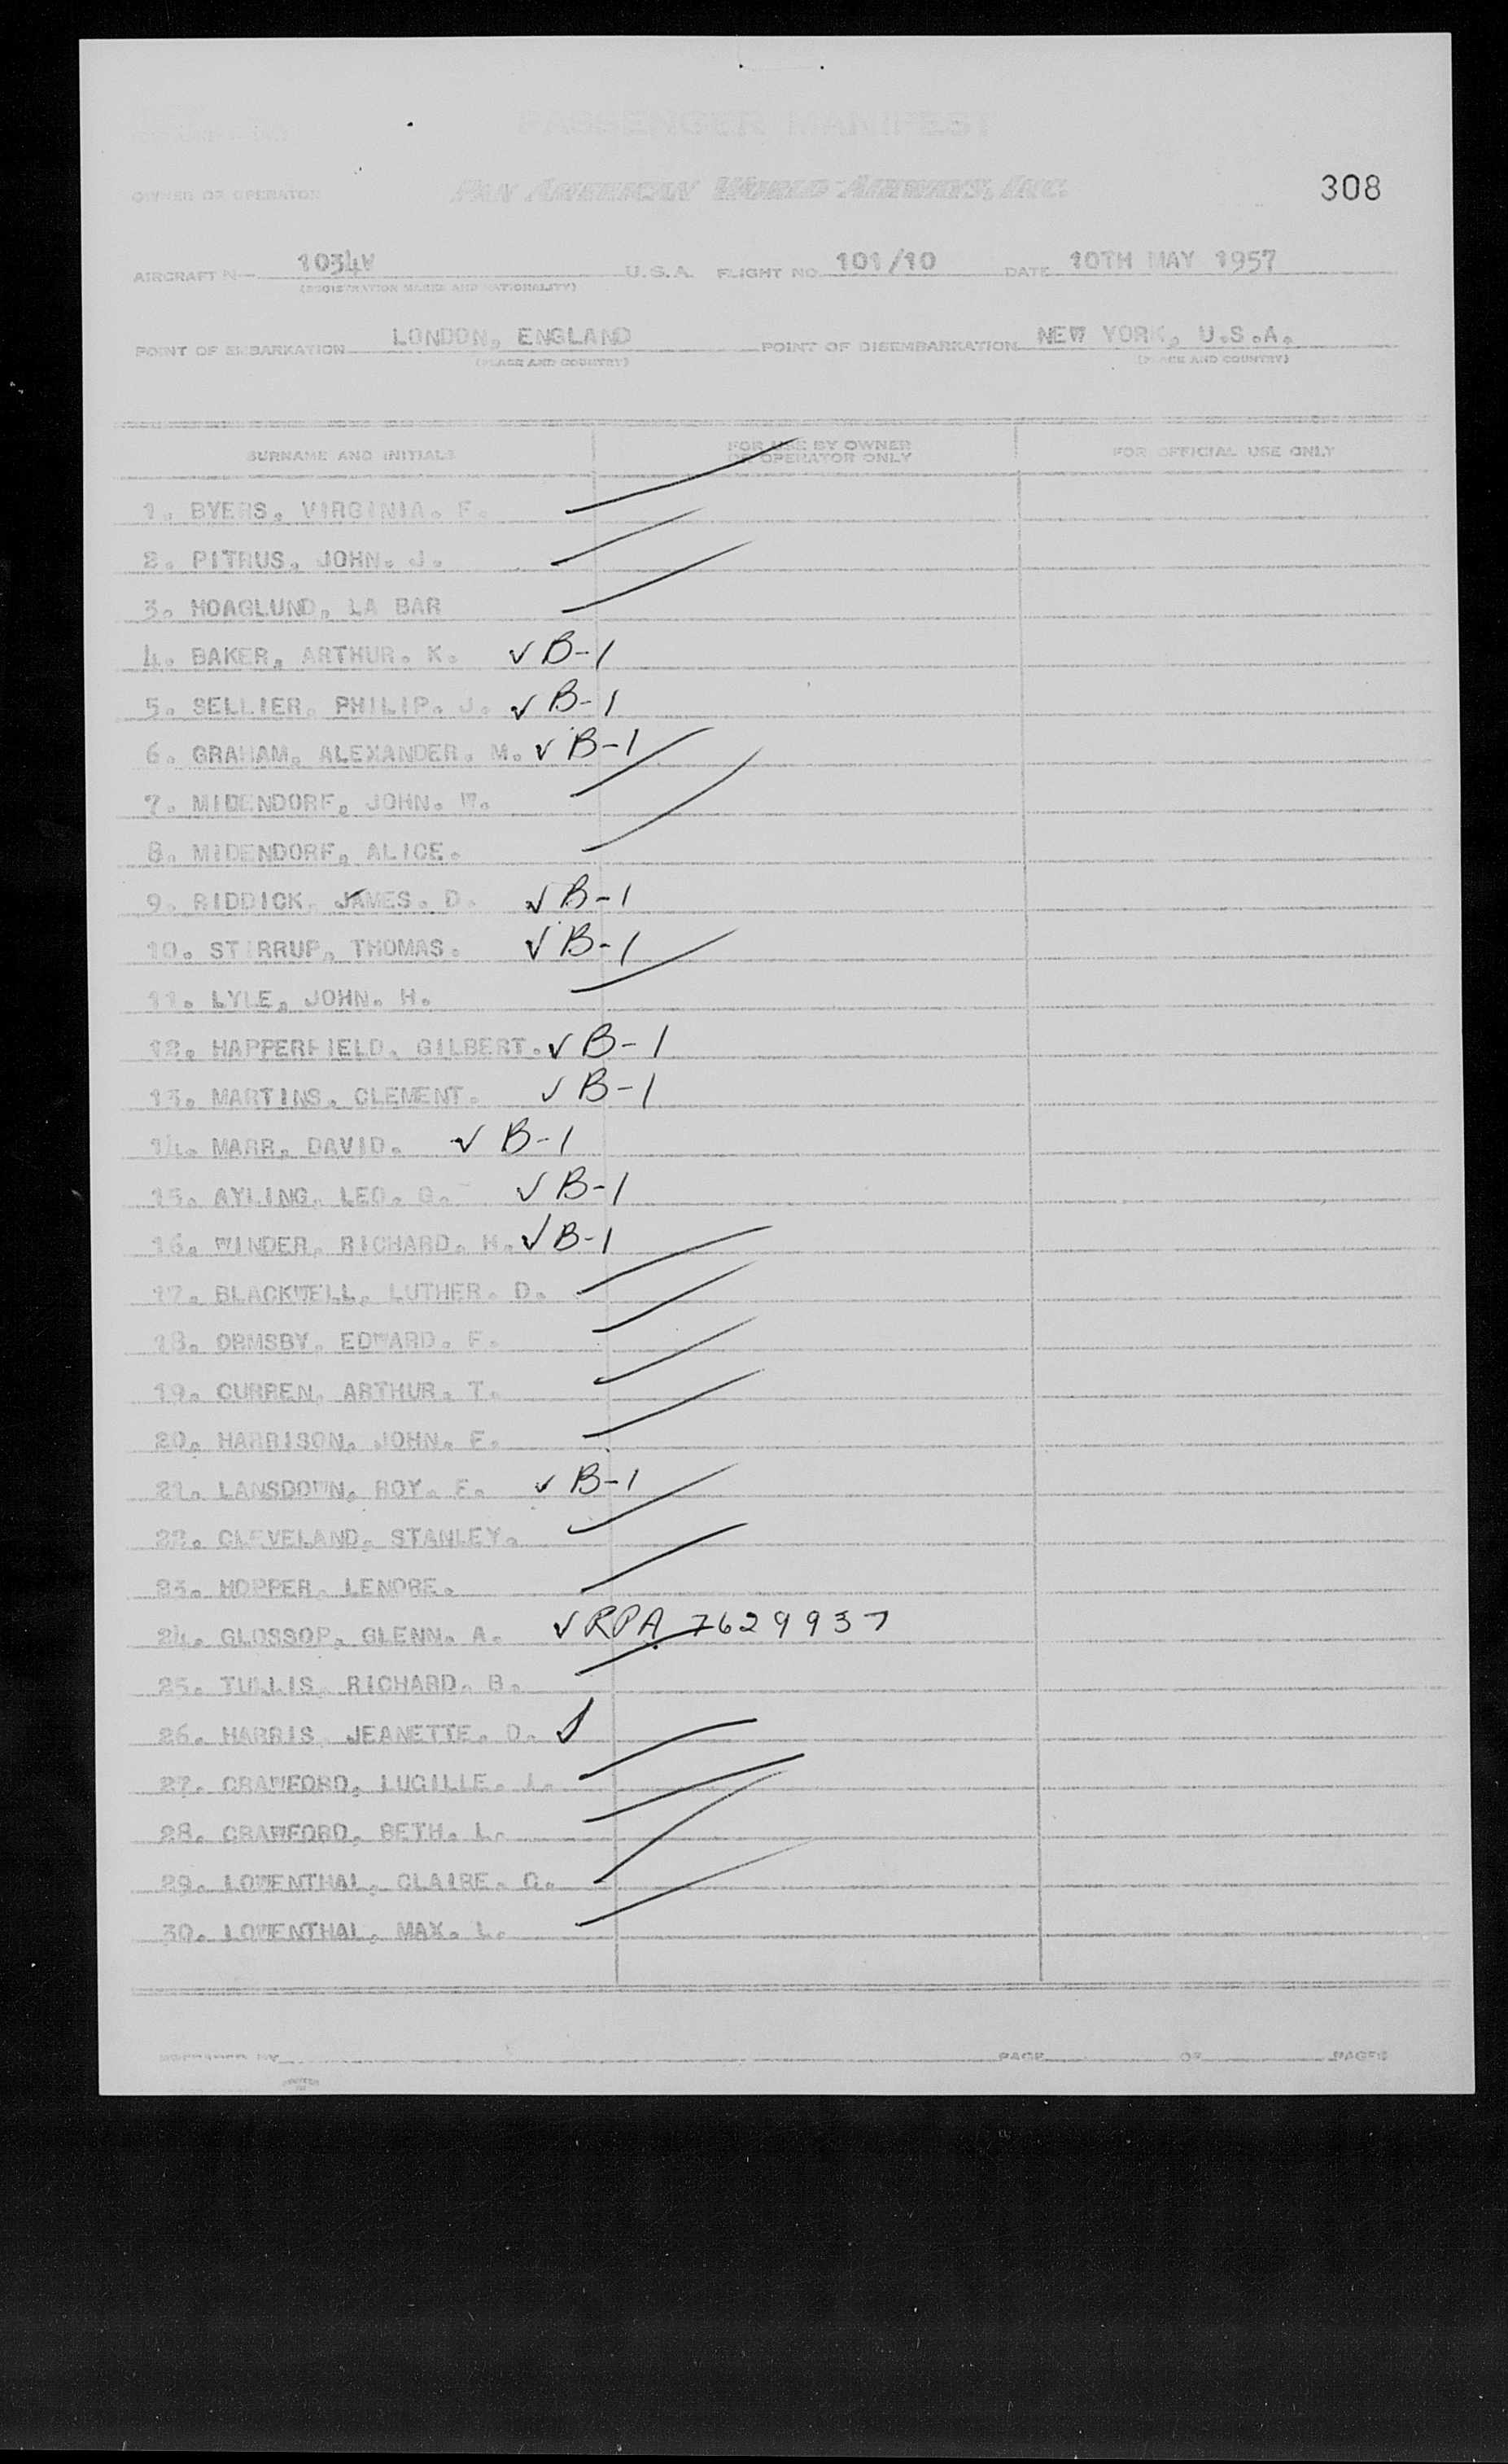 PASSENGER MANIFEST
308
OWNER OR OPERATOR PAN AMERICAN WORLD AIRWAYS, INC.
AIRCRAFT N- 1034V U.S.A. FLIGHT NO. 101/10 DATE 10TH MAY 1957
(REGISTRATION MARKS AND NATIONALITY)
POINT OF EMBARKATION LONDON, ENGLAND POINT OF DISEMBARKATION NEW YORK, U.S.A.
(PLACE AND COUNTRY) (PLACE AND COUNTRY)
SURNAME AND INITIALS FOR USE BY OWNER OR OPERATOR ONLY FOR OFFICIAL USE ONLY
1. BYERS, VIRGINIA. F.
2. PITRUS, JOHN. J.
3. HOAGLUND, LA BAR
4. BAKER, ARTHUR. K. ✓ B-1
5. SELLIER, PHILIP. J. ✓ B-1
6. GRAHAM, ALEXANDER. M. ✓ B-1
7. MIDENDORF, JOHN. W.
8. MIDENDORF, ALICE.
9. RIDDICK, JAMES. D. ✓ B-1
10. STIRRUP, THOMAS. ✓ B-1
11. LYLE, JOHN. H.
12. HAPPERFIELD, GILBERT. ✓ B-1
13. MARTINS, CLEMENT. ✓ B-1
14. MARR, DAVID. ✓ B-1
15. AYLING, LEO. G. ✓ B-1
16. WINDER, RICHARD. H. ✓ B-1
17. BLACKWELL, LUTHER. D.
18. ORMSBY, EDWARD. F.
19. CURREN, ARTHUR. T.
20. HARRISON, JOHN. E.
21. LANSDOWN, ROY. F. ✓ B-1
22. CLEVELAND, STANLEY.
23. HOPPER, LENORE.
24. GLOSSOP, GLENN. A. ✓ RPA 7629937
25. TULLIS, RICHARD. B.
26. HARRIS, JEANETTE. D. ✓
27. CRAWFORD, LUCILLE. I.
28. CRAWFORD, BETH. L.
29. LOWENTHAL, CLAIRE. G.
30. LOWENTHAL, MAX. L.
PREPARED BY PAGE OF PAGES